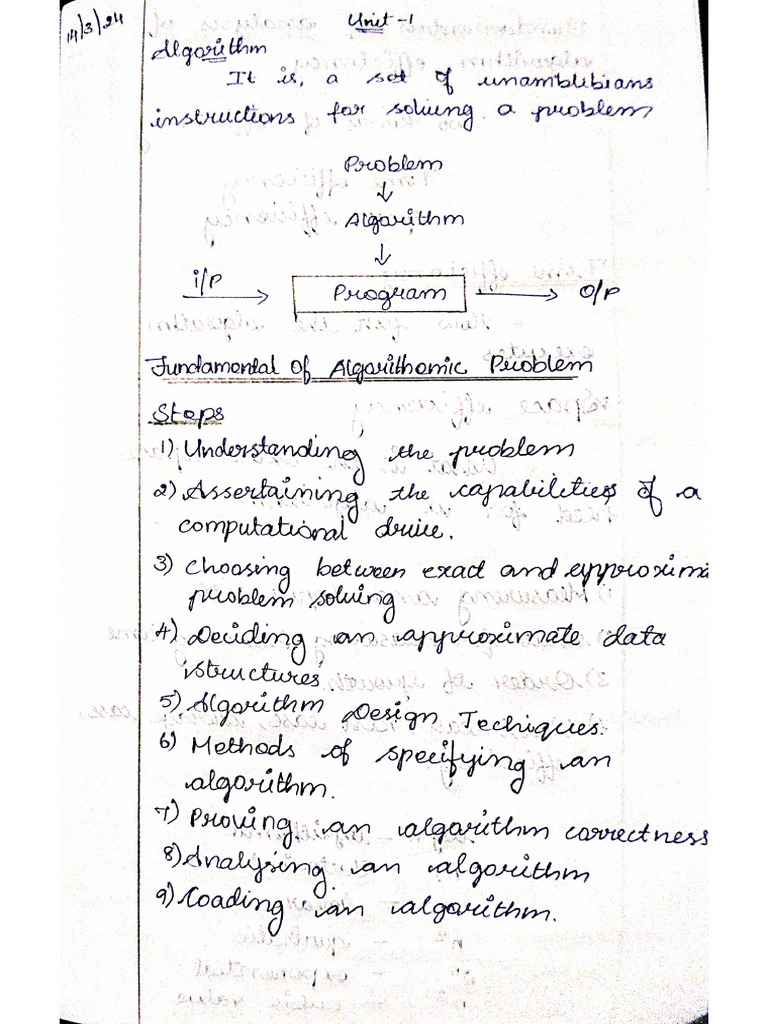 14/3/24
Unit-1
Algorithm
It is, a set of unamblibians
instructions for solving a problem
Problem
↓
Algorithm
↓
i/P → Program → O/P
Fundamental Of Algorithomic Problem
Steps
1) Understanding the problem
2) Assertaining the capabilities of a
computational druie.
3) Choosing between exact and approxim
problem solving
4) Deciding an approximate data
structures.
5) Algorithm Design Techiques.
6) Methods of specifying an
algorithm.
7) Proving an algorithm correctness
8) Analysing an algorithm
9) Coading an algorithm.